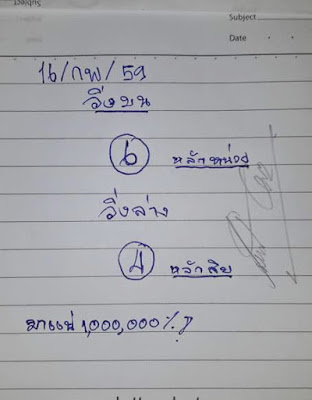 Subject
Date
16/กพ/59
วิ่งบน
6 หลักหน่วย
วิ่งล่าง
4 หลักสิบ
มาแน่ 1,000,000%